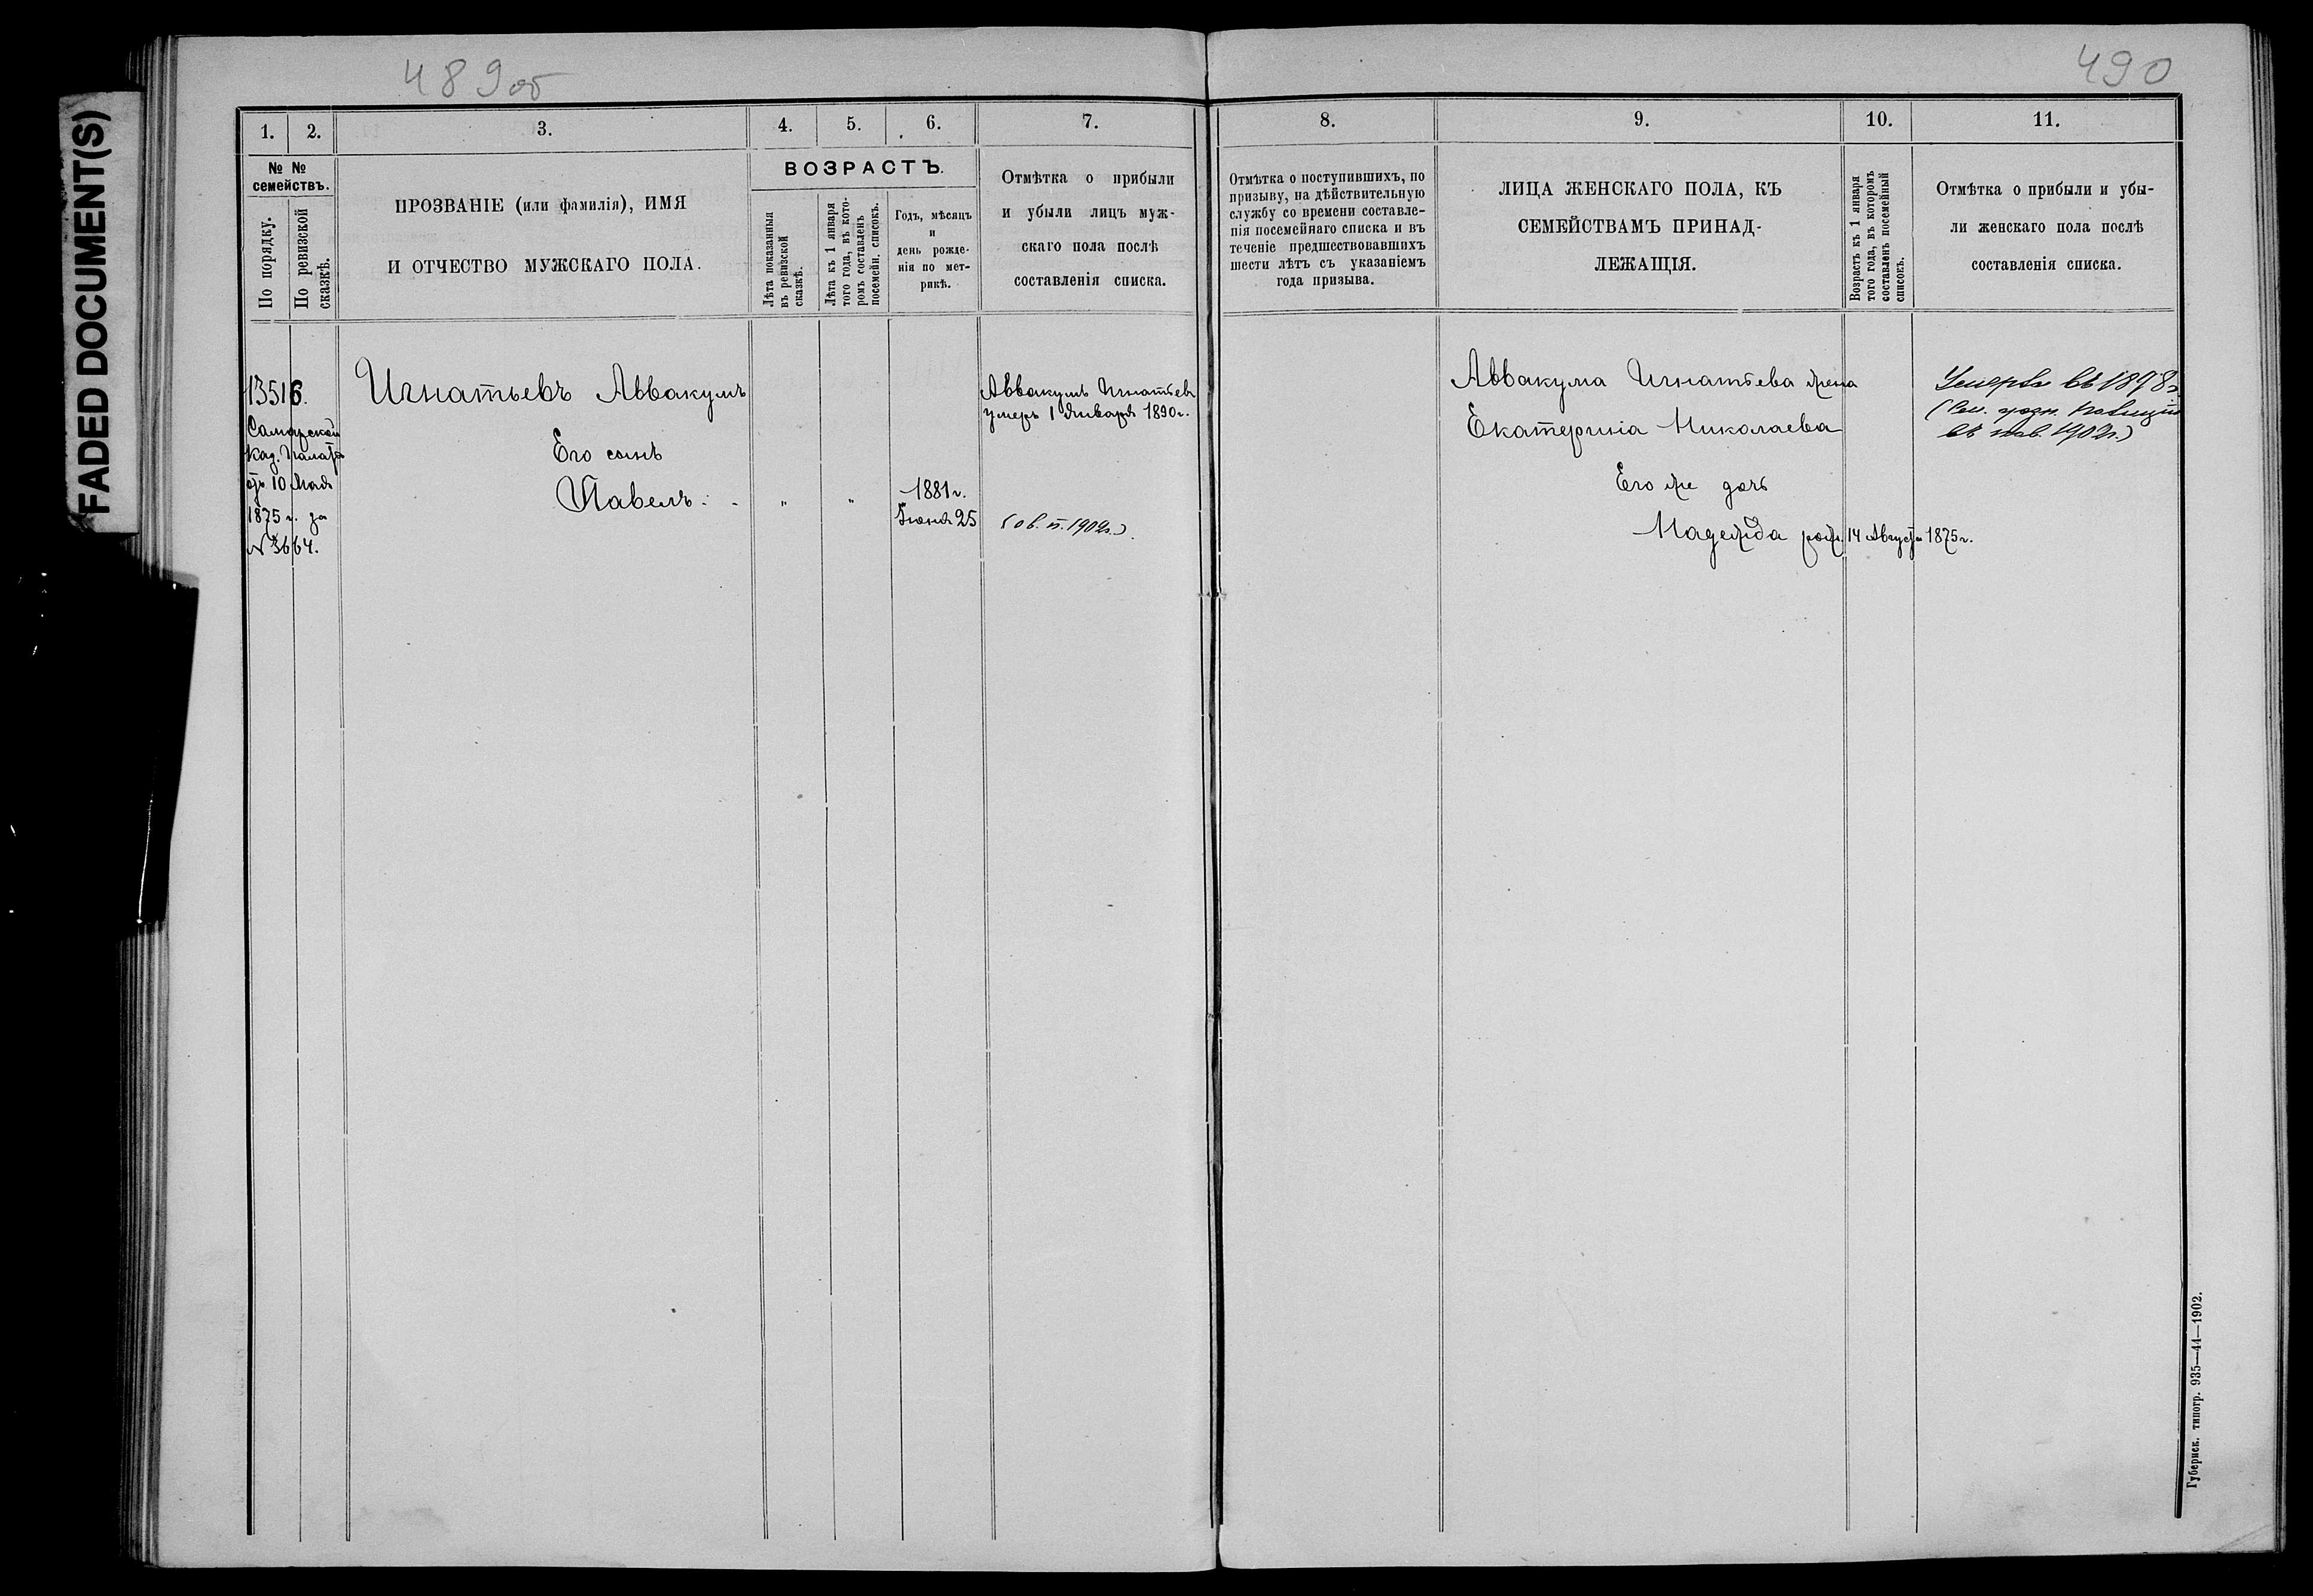 FADED DOCUMENT(S)
489об
490
1.
2.
3.
4.
5.
6.
7.
8.
9.
10.
11.
№ №
семействъ.
По порядку.
По ревизской
сказкѣ.
ПРОЗВАНІЕ (или фамилія), ИМЯ
И ОТЧЕСТВО МУЖСКАГО ПОЛА.
ВОЗРАСТЪ.
Лѣта показанныя
въ ревизской
сказкѣ.
Лѣта къ 1 января
того года, въ кото-
ромъ составленъ
посемейн. списокъ.
Годъ, мѣсяцъ
и
день рожде-
нія по мет-
рикѣ.
Отмѣтка о прибыли
и убыли лицъ муж-
скаго пола послѣ
составленія списка.
Отмѣтка о поступившихъ, по
призыву, на дѣйствительную
службу со времени составле-
нія посемейнаго списка и въ
теченіе предшествовавшихъ
шести лѣтъ съ указаніемъ
года призыва.
ЛИЦА ЖЕНСКАГО ПОЛА, КЪ
СЕМЕЙСТВАМЪ ПРИНАД-
ЛЕЖАЩІЯ.
Возрастъ къ 1 января
того года, въ которомъ
составленъ посемейный
списокъ.
Отмѣтка о прибыли и убы-
ли женскаго пола послѣ
составленія списка.
13516.
Самарской
Каз. Палаты
отъ 10 Мая
1875 г. за
№ 3664.
Игнатьевъ Аввакумъ
Его сынъ
Павелъ
" "
1881 г.
Іюня 25
Аввакумъ Игнатьевъ
умеръ 1 Января 1890 г.
1902г.)
Аввакума Игнатьева жена
Екатерина Николаева
Его же дочь
Надежда рож. 14 Августа 1875 г.
Умерла въ 1898 г.
Полиціи
въ 1902г.)
Губернск. типогр. 935—44—1902.